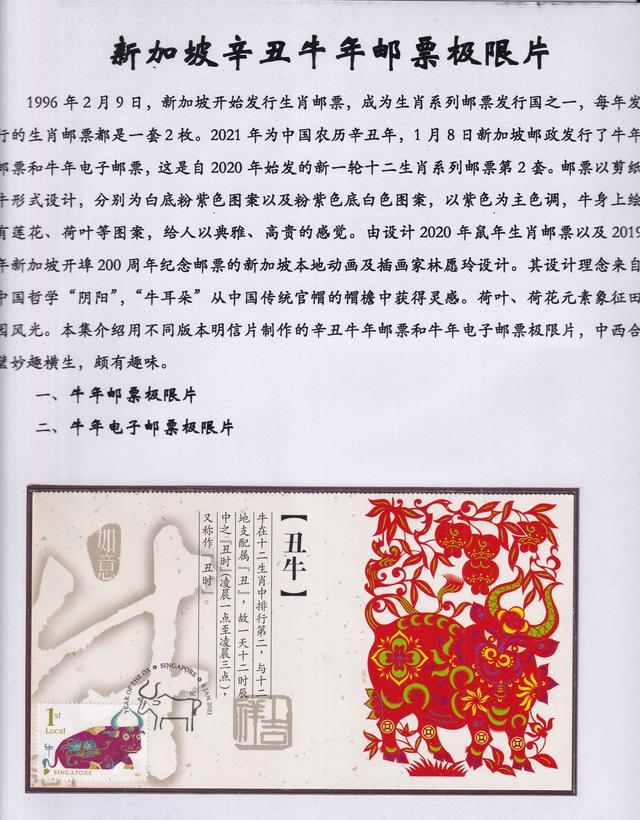 新加坡辛丑牛年邮票极限片
1996年2月9日，新加坡开始发行生肖邮票，成为生肖系列邮票发行国之一，每年发
行的生肖邮票都是一套2枚。2021年为中国农历辛丑年，1月8日新加坡邮政发行了牛年
邮票和牛年电子邮票，这是自2020年始发的新一轮十二生肖系列邮票第2套。邮票以剪纸
牛形式设计，分别为白底粉紫色图案以及粉紫色底白色图案，以紫色为主色调，牛身上绘
有莲花、荷叶等图案，给人以典雅、高贵的感觉。由设计2020年鼠年生肖邮票以及2019
年新加坡开埠200周年纪念邮票的新加坡本地动画及插画家林愿玲设计。其设计理念来自
中国哲学“阴阳”，“牛耳朵”从中国传统官帽的帽檐中获得灵感。荷叶、荷花元素象征田
园风光。本集介绍用不同版本明信片制作的辛丑牛年邮票和牛年电子邮票极限片，中西合
璧妙趣横生，颇有趣味。
一、牛年邮票极限片
二、牛年电子邮票极限片
【丑牛】
牛在十二生肖中排行第二，与十二
地支配属『丑』，故一天十二时辰
中之『丑时』（凌晨一点至凌晨三点），
又称作『丑时』。
如意
吉祥
YEAR OF THE OX SINGAPORE 8 JAN 2021
TC
1st
Local
牛
SINGAPORE